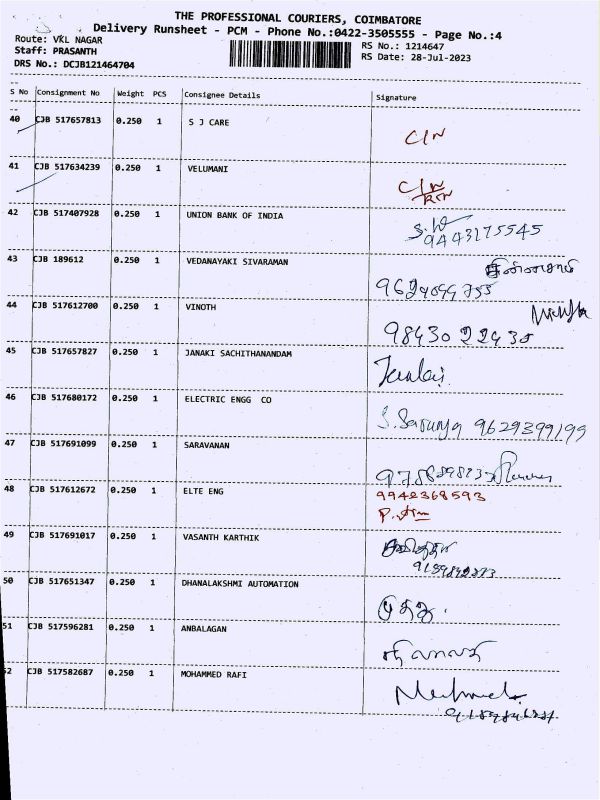 THE PROFESSIONAL COURIERS, COIMBATORE
Delivery Runsheet - PCM - Phone No.:0422-3505555 - Page No.:4
Route: VKL NAGAR
Staff: PRASANTH
DRS No.: DCJB121464704
RS No.: 1214647
RS Date: 28-Jul-2023
S No Consignment No Weight PCS Consignee Details Signature
40 CJB 517657813 0.250 1 S J CARE C/N
41 CJB 517634239 0.250 1 VELUMANI C/N
42 CJB 517407928 0.250 1 UNION BANK OF INDIA
9443175545
43 CJB 189612 0.250 1 VEDANAYAKI SIVARAMAN
44 CJB 517612700 0.250 1 VINOTH
98430 22430
45 CJB 517657827 0.250 1 JANAKI SACHITHANANDAM
46 CJB 517680172 0.250 1 ELECTRIC ENGG CO
S. Saranya 9629399199
47 CJB 517691099 0.250 1 SARAVANAN
48 CJB 517612672 0.250 1 ELTE ENG 9942368593
49 CJB 517691017 0.250 1 VASANTH KARTHIK
50 CJB 517651347 0.250 1 DHANALAKSHMI AUTOMATION
51 CJB 517596281 0.250 1 ANBALAGAN
52 CJB 517582687 0.250 1 MOHAMMED RAFI